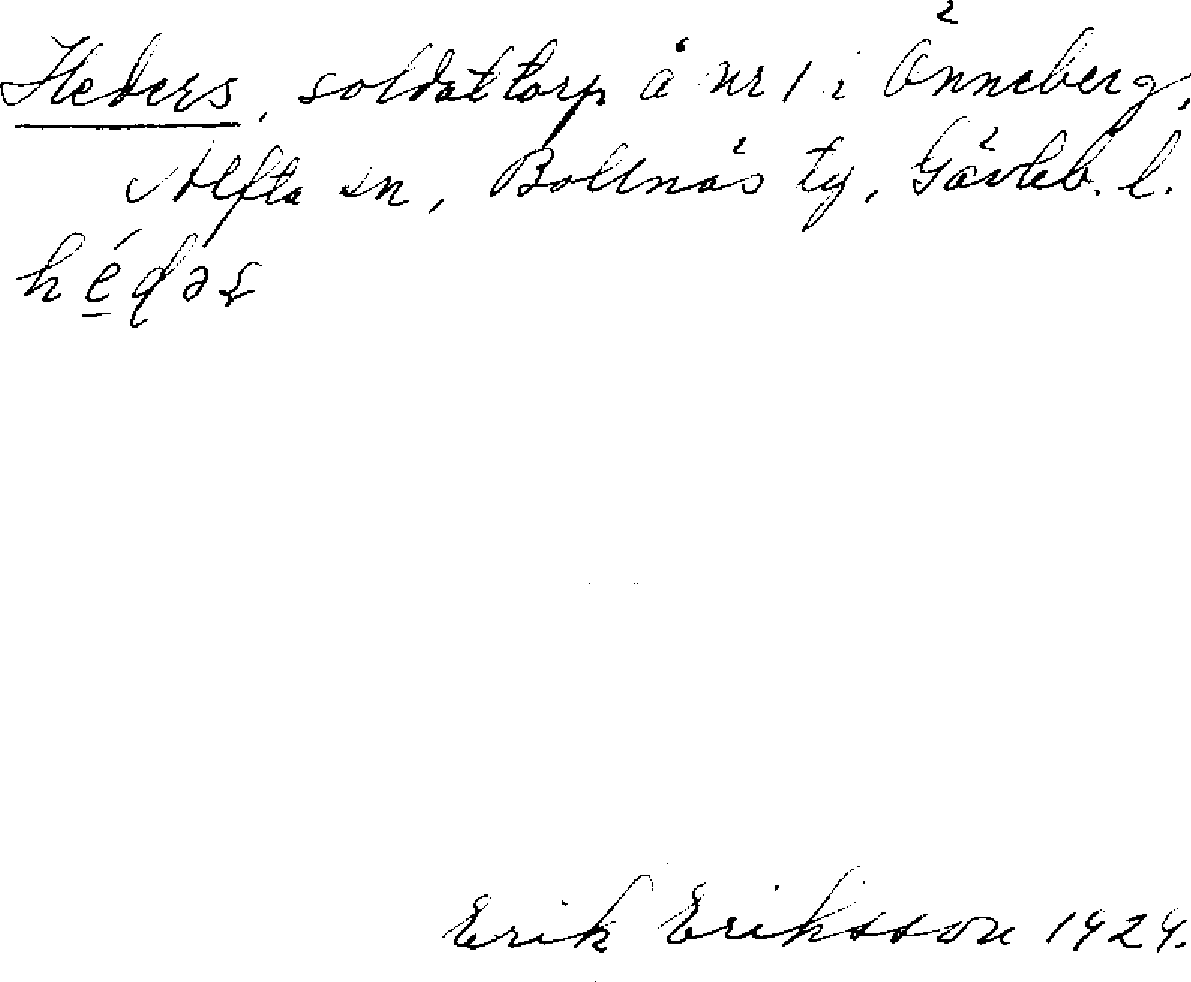 Heders, soldattorp å nr 1 i Änneberg,
Alfta sn, Bollnäs tg, Gävleb. l.
Erik Eriksson 1929.